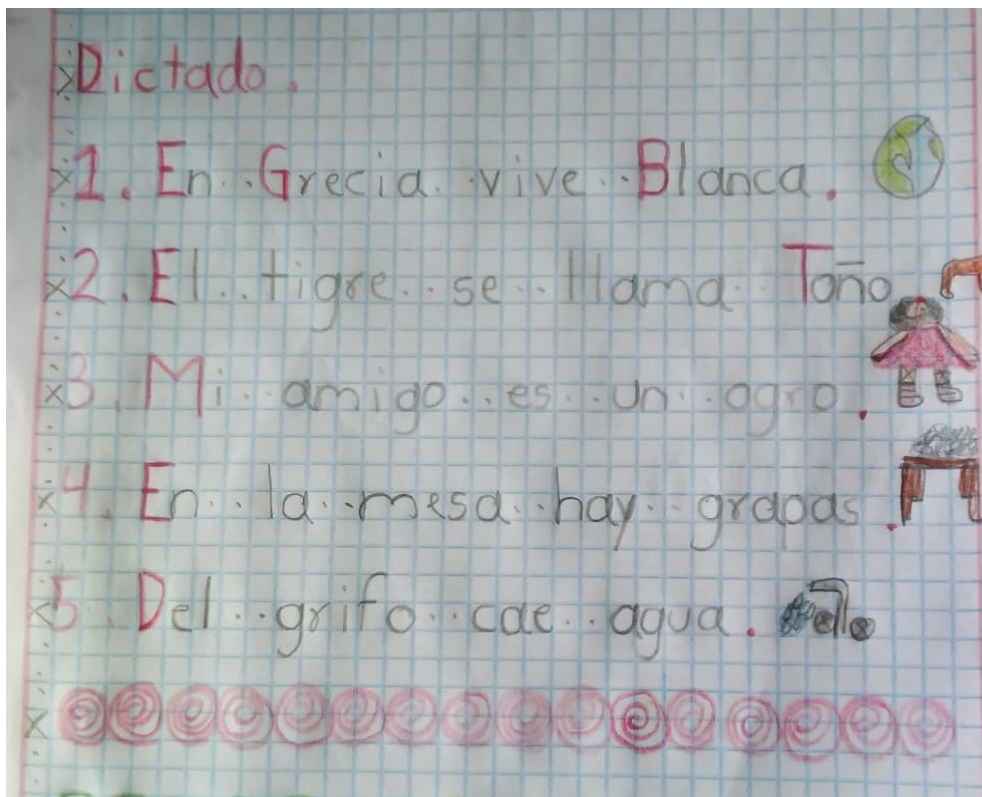 Dictado.
1. En Grecia vive Blanca.
2. El tigre se llama Toño
3. Mi amigo es un ogro.
4. En la mesa hay grapas.
5. Del grifo cae agua.